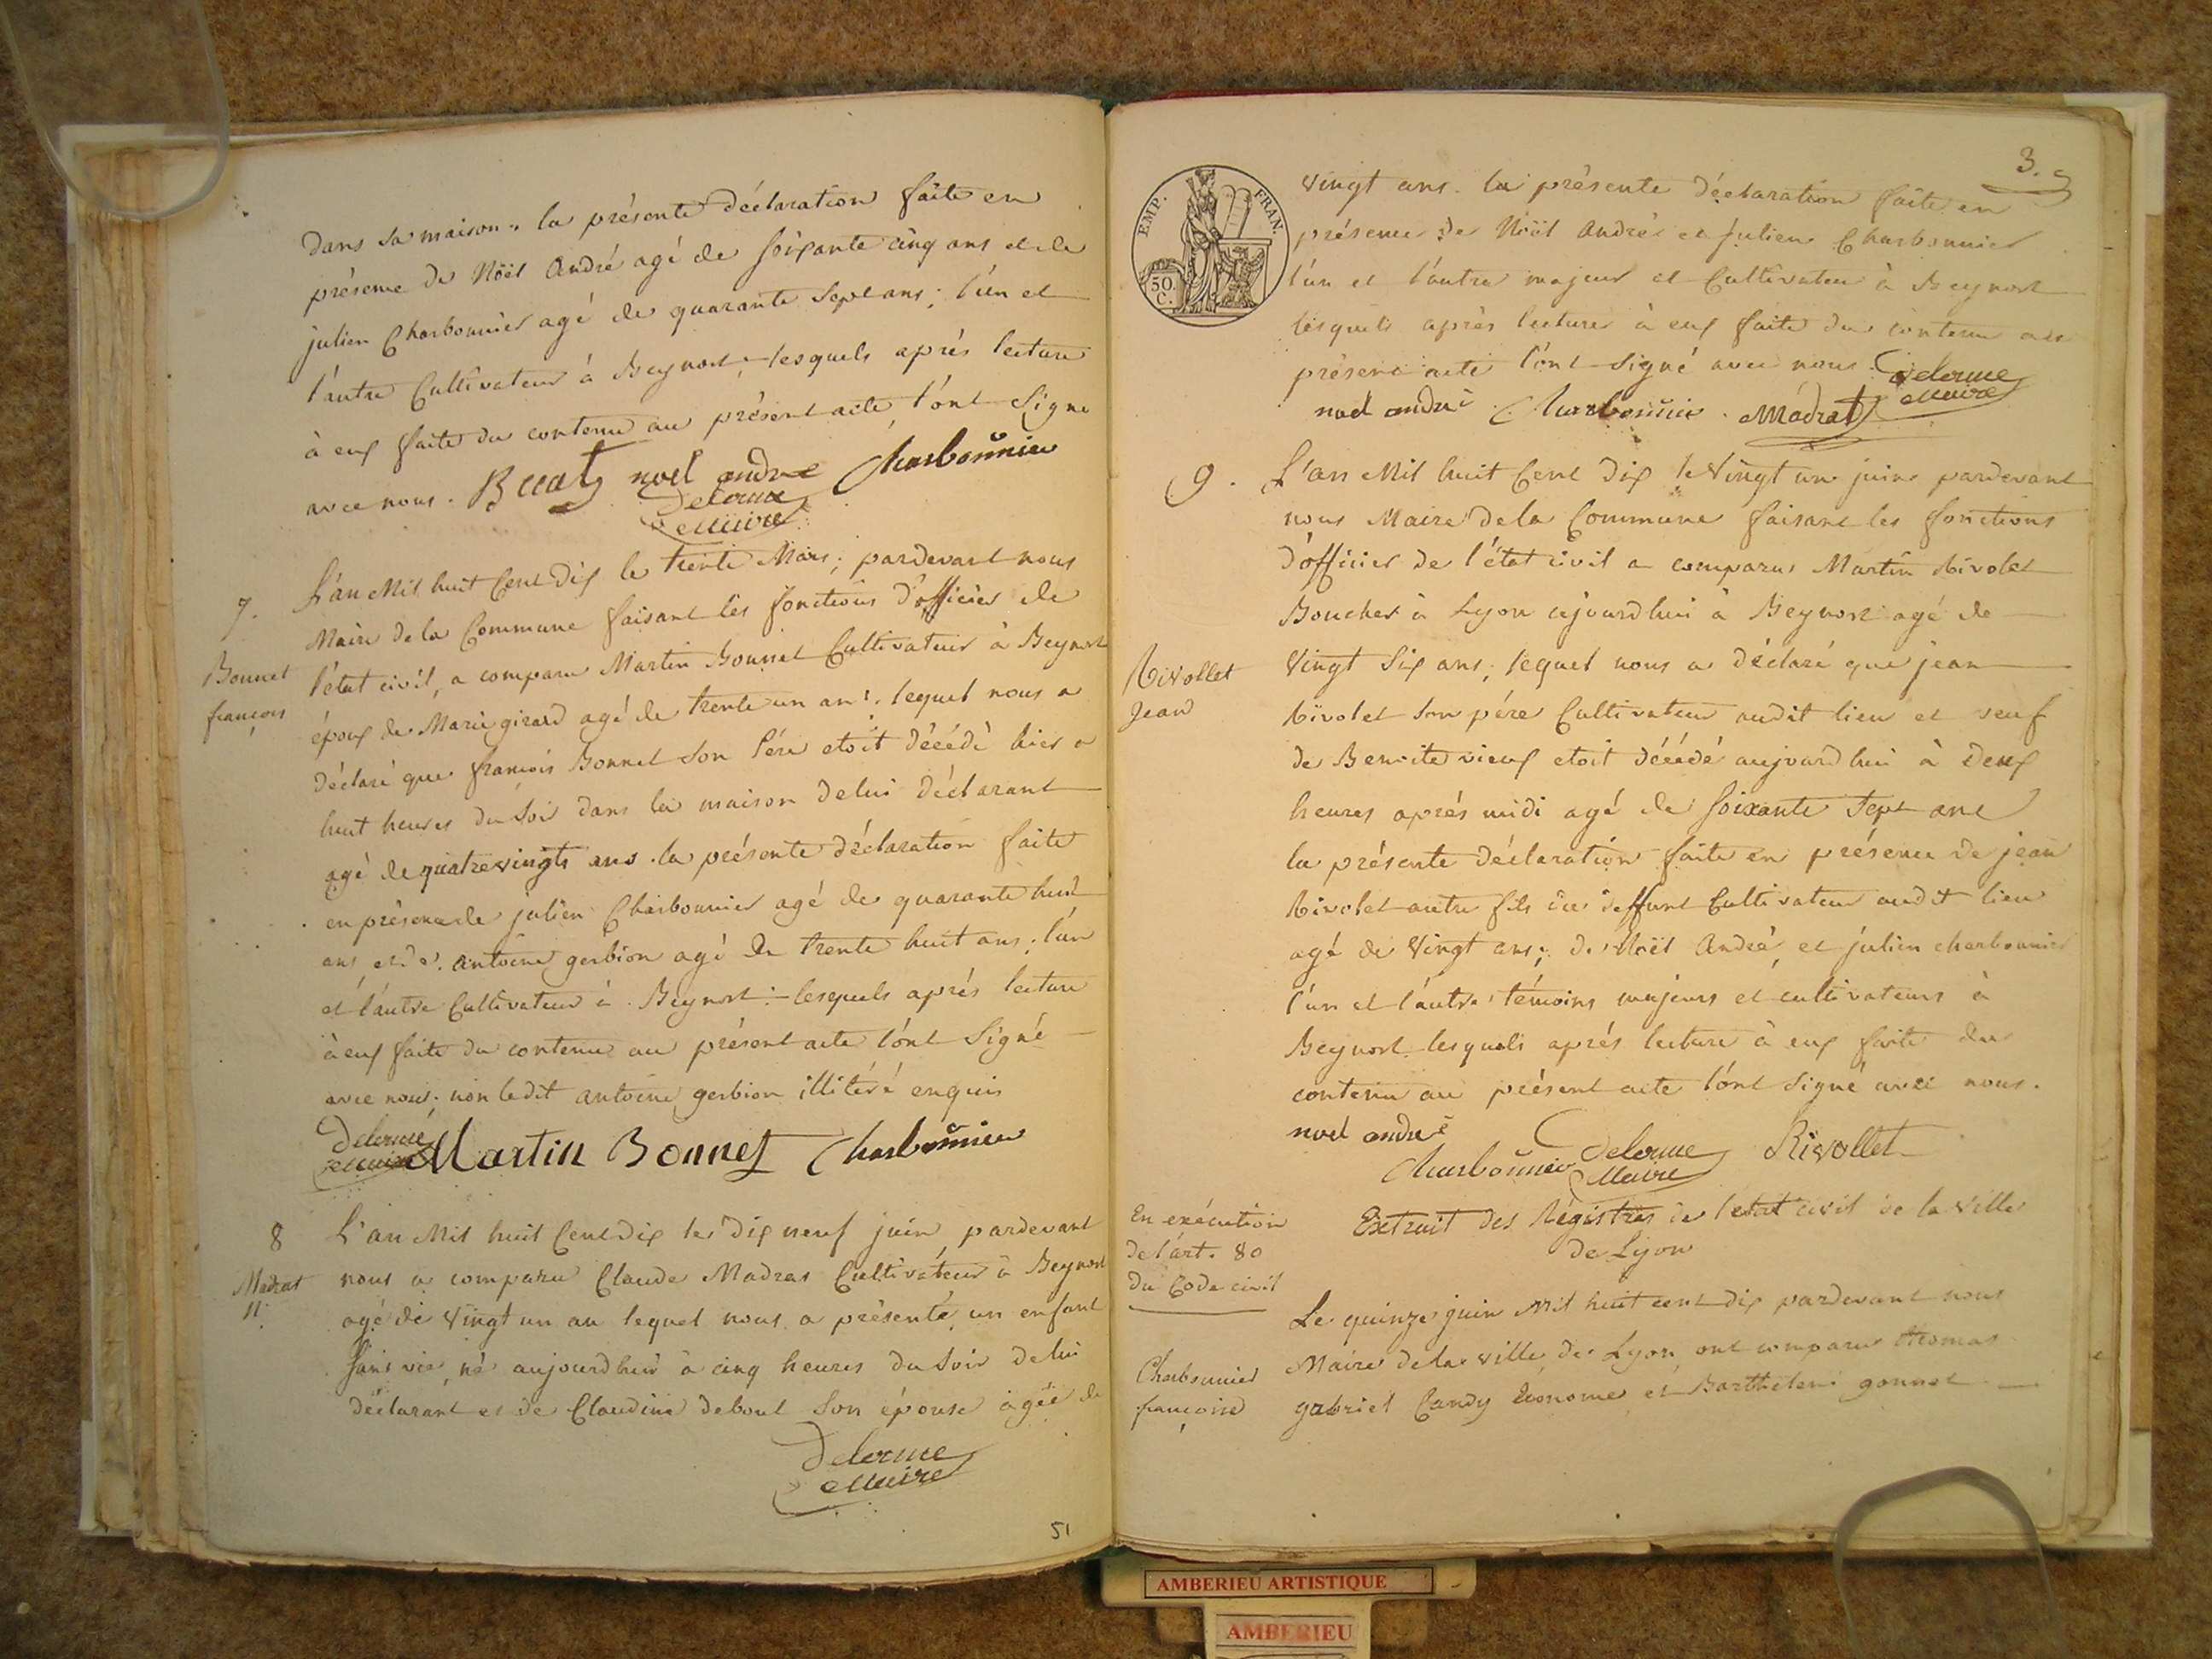 dans sa maison. la présente déclaration faite en
présence de Nöèl André agé de soixante cinq ans et de
julien Charbonnier agé de quarante sept ans; l'un et
l'autre Cultivateur à Beynost; lesquels après lecture
à eux faite du contenu au présent acte l'ont signé
avec nous. noel andre Charbonnier
Delorme
Maire
7.
Bonnet
françois
L'an Mil huit Cent dix le trente Mars; pardevant nous
Maire de la Commune faisant les fonctions d'officier de
l'état civil, a comparu Martin Bonnet Cultivateur à Beynost
époux de Marie girard agé de trente un ans. lequel nous a
déclaré que francois Bonnet son Père etoit décédé hier a
huit heures du soir dans la maison de lui déclarant
agé de quatrevingts ans. la présente déclaration faite
en présence de julien Charbonnier agé de quarante huit
ans et de antoine gerbion agé de trente huit ans; l'un
et l'autre Cultivateur à Beynost: lesquels après lecture
à eux faite du contenu au présent acte l'ont signé
avec nous; non ledit antoine gerbion illitéré enquis
Delorme
Maire Martin Bonnet Charbonnier
8
Madras
N.
L'an Mil huit Cent dix le dix neuf juin pardevant
nous a comparu Claude Madras Cultivateur à Beynost
agé de vingt un an lequel nous a présenté un enfant
sans vie, né aujourdhui à cinq heures du soir de lui
déclarant et de Claudine debout son épouse agée de
Delorme
Maire
51
3.
EMP. FRAN.
50.
C.
vingt ans. la présente déclaration faite en
présence de Nöèl André et julien Charbonnier
l'un et l'autre majeur et Cultivateur à Beynost
lesquels après lecture à eux faite du contenu au
présent acte l'ont signé avec nous. Delorme
Maire
noel andré Charbonnier Madrat
9.
Rivollet
Jean
L'an Mil huit Cent dix le vingt un juin pardevant
nous Maire de la Commune faisant les fonctions
d'officier de l'état civil a comparu Martin Rivolet
Boucher à Lyon aujourdhui à Beynost agé de
vingt six ans; lequel nous a déclaré que jean
Rivolet son père Cultivateur audit lieu et veuf
de Benoite vieux etoit décédé aujourdhui à deux
heures après midi agé de soixante sept ans
la présente déclaration faite en présence de jean
Rivolet autre fils du deffunt Cultivateur audit lieu
agé de vingt ans; de Nöèl André, et julien charbonnier
l'un et l'autre témoins majeurs et cultivateurs à
Beynost lesquels après lecture à eux faite du
contenu au présent acte l'ont signé avec nous.
noel andré
Charbonnier Delorme Rivollet
Maire
En exécution
de l'art. 80
du Code civil
Extrait des Régistres de l'etat civil de la ville
de Lyon
Charbonnier
françoise
Le quinze juin Mil huit cent dix pardevant nous
Maire de la ville de Lyon, ont comparu thomas
gabriel Candy Econome et Barthelemi gonnet
AMBERIEU ARTISTIQUE
AMBERIEU